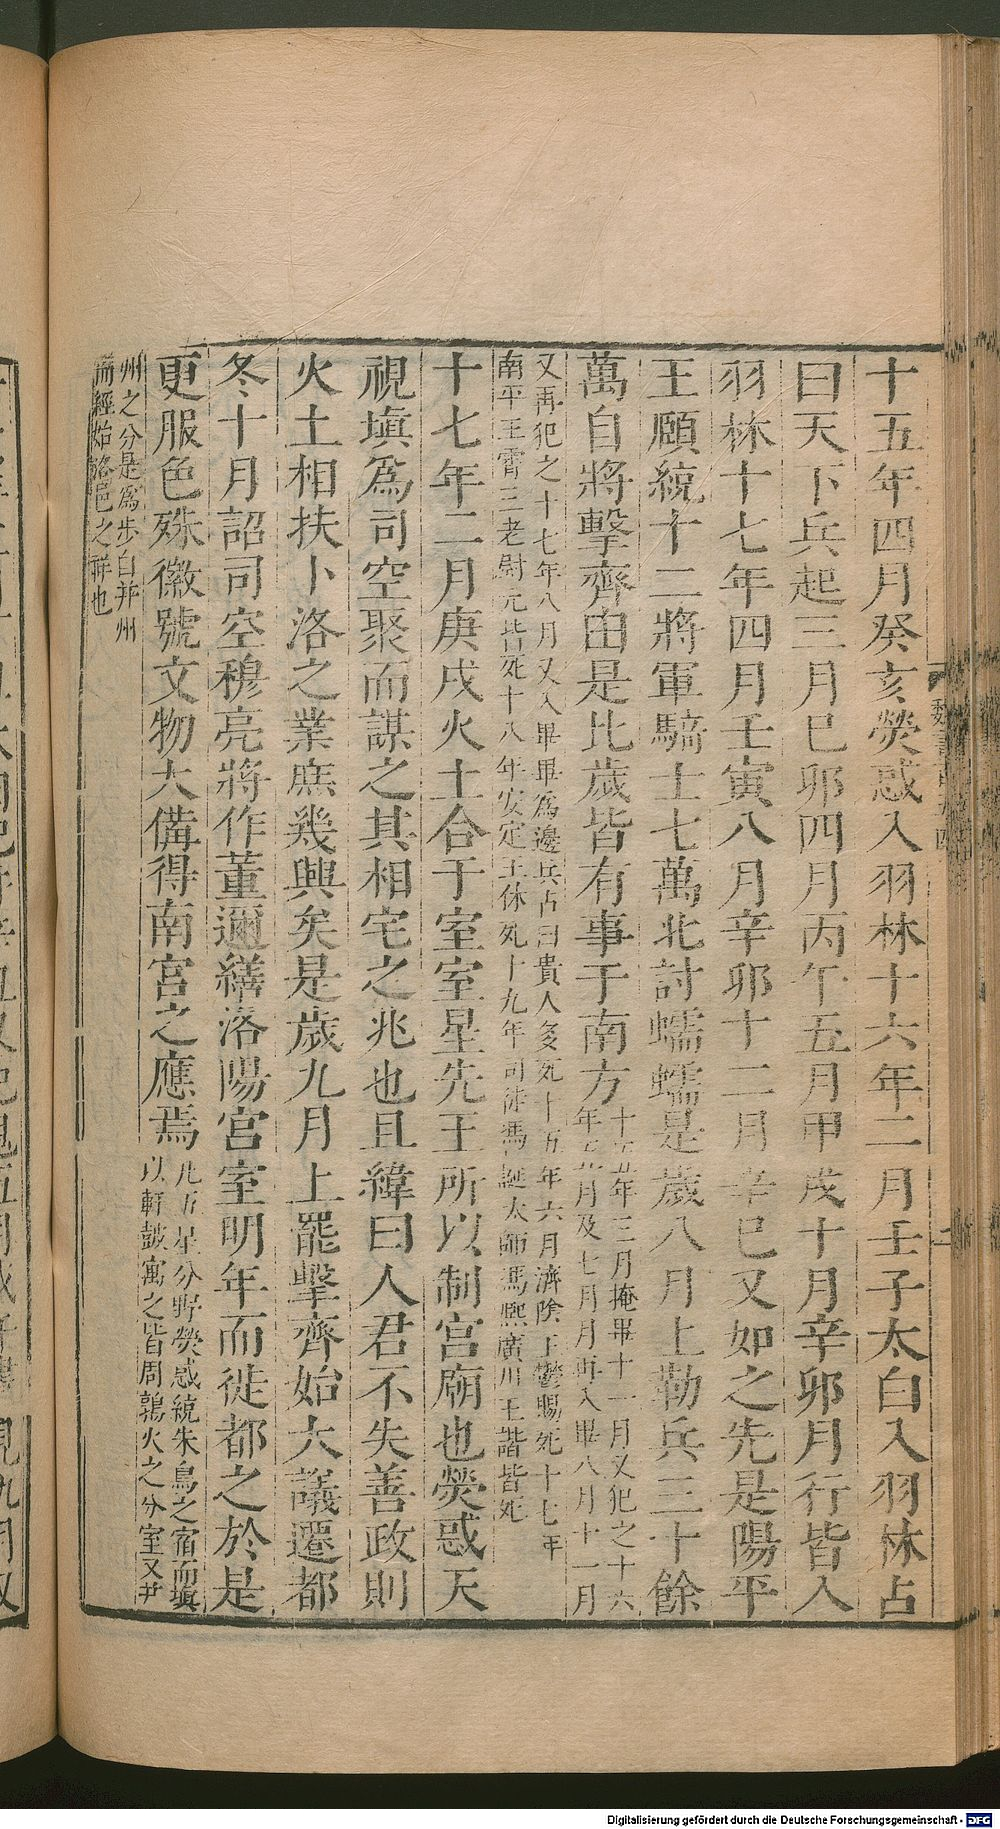 十五年四月癸亥熒惑入羽林十六年二月壬子太白入羽林占
曰天下兵起三月巳卯四月丙午五月甲戌十月辛卯月行皆入
羽林十七年四月壬寅八月辛卯十二月辛巳又如之先是陽平
王頤統十二將軍騎士七萬北討蠕蠕是歲八月上勒兵三十餘
萬自將擊齊由是比歲皆有事于南方
十五年三月掩畢十一月又犯之十六
年五月及七月月再入畢八月十一月
又再犯之十七年八月又入畢畢爲邊兵占曰貴人多死十五年六月濟陰王鬱賜死十七年
南平王霄三老尉元皆死十八年安定王休死十九年司徒馮誕太師馮熙廣川王諧皆死
十七年二月庚戌火土合于室室星先王所以制宮廟也熒惑天
視塡爲司空聚而謀之其相宅之兆也且緯曰人君不失善政則
火土相扶卜洛之業庶幾興矣是歲九月上罷擊齊始大議遷都
冬十月詔司空穆亮將作董邇繕洛陽宮室明年而徙都之於是
更服色殊徽號文物大備得南宮之應焉
凡五星分野熒惑統朱鳥之宿而塡
以軒鼓寓之皆周鶉火之分室又并
州之分是爲步自并州
而經始洛邑之祥也
Digitalisierung gefördert durch die Deutsche Forschungsgemeinschaft - DFG